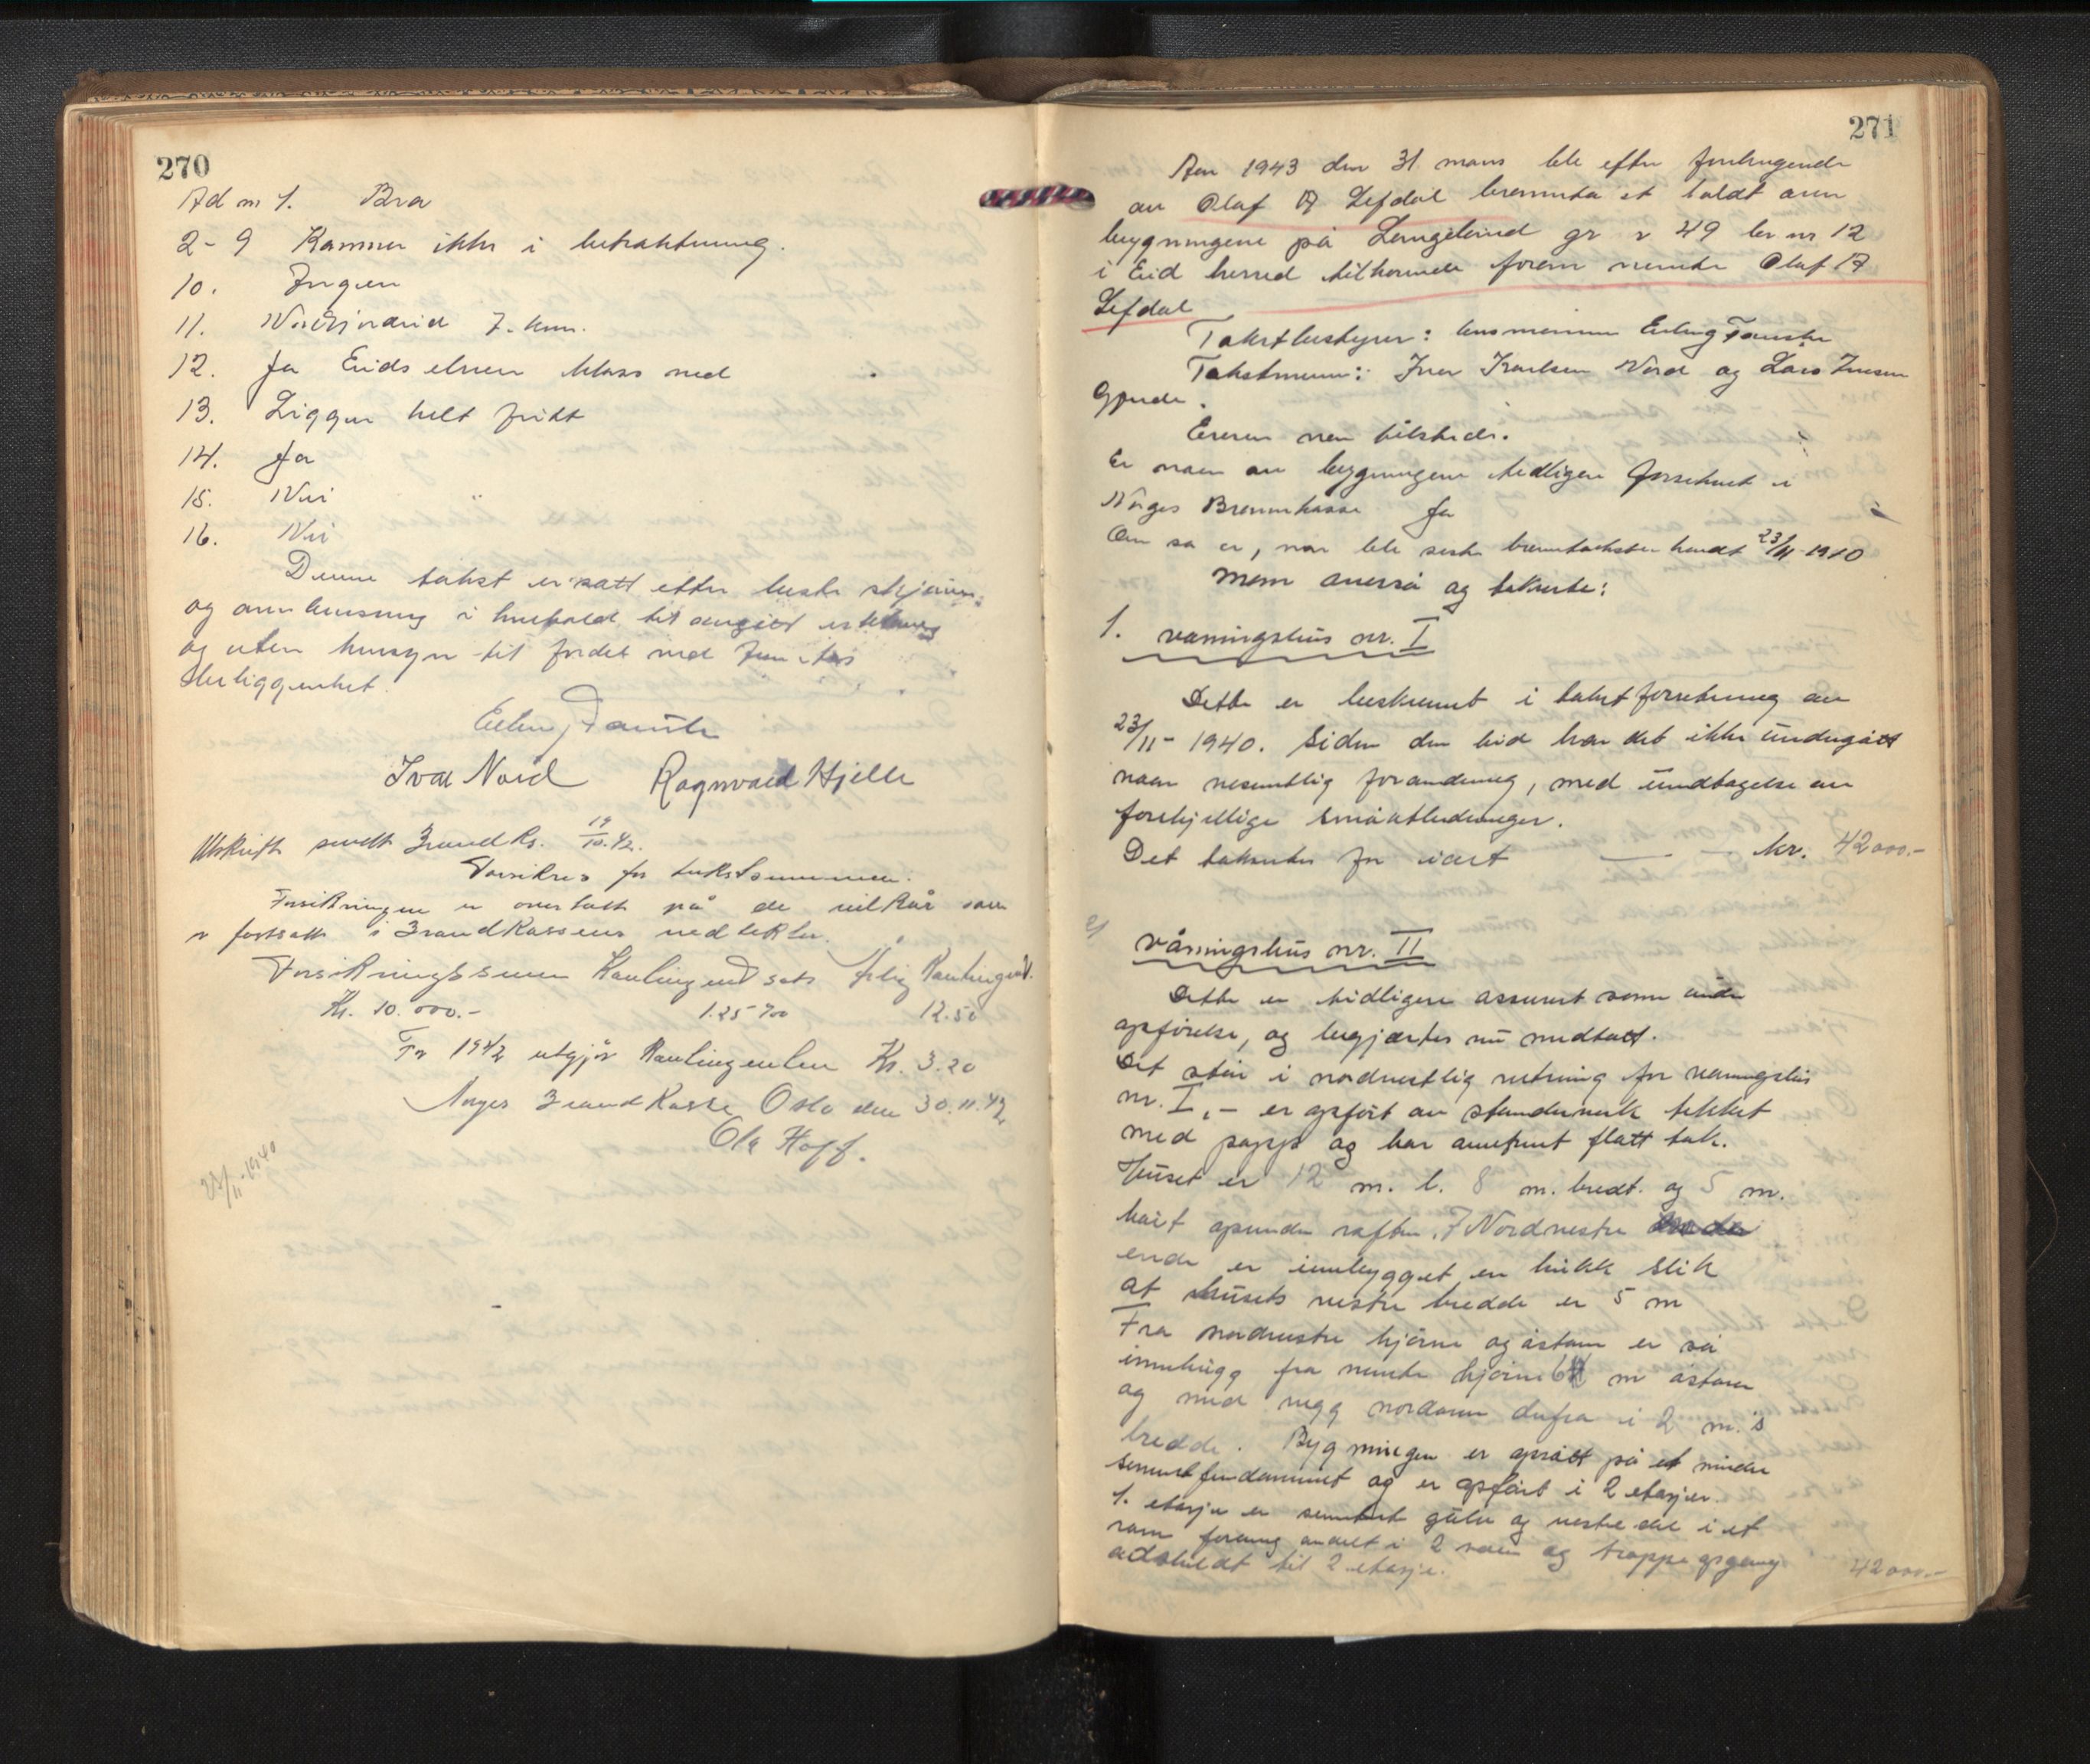 270
Ad nr 1. Bra
2-9 Kommer ikke i betraktning.
10. Ingen
11. Nordfjordeid 7. km.
12. Ja Eids elven like ved
13. Ligger helt fritt
14. Ja
15. Nei
16. Nei
Denne takst er satt etter beste skjønn
og overbevisning i henhold til avgitt erklæring
og uten hensyn til fordel ved tomtens
Beliggenhet.
Erling Fauske
Ivar Nord Ragnvald Hjelle
Utskrift sendt Brandks. 19/10.42.
Forsikres for takstsummen.
Forsikringen er overtatt på de vilkår som
er fastsatt i Brandkassens vedtekter.
Forsikringssum Kontingentsats Årlig Kontingent.
Kr. 10.000.- 1.25 ‰ 12.50
For 1942 utgjør Kontingenten Kr. 3.20
Norges Brandkasse, Oslo den 30.11.42
Ole Hoff.
23/11-1940
271
Aar 1943 den 31 mars ble efter forlangende
av Olaf A Lefdal branntakst holdt over
bygningene på Langeland gr nr 49 br nr 12
i Eid herred tilhørende foran nevnte Olaf A
Lefdal
Takstbestyrer: lensmannen Erling Fauske
Takstmenn: Ivar Karlsen Nord og Lars Iversen
Gjerde.
Eieren var tilstede.
Er noen av bygningene tidligere forsikret i
Norges Brannkasse Ja
Om så er, når ble siste branntakster holdt 23/11-1940
Man overså og takserte:
1. våningshus nr. I
Dette er beskrevet i takstforretning av
23/11- 1940. Siden den tid har det ikke undergått
noen vesentlig forandring, med undtagelse av
forskjellige småutbedringer.
Det takseres for verdt — - kr. 42000.-
2/ våningshus nr. II
Dette er tidligere assurert som under
opførelse, og begjærtes nu medtatt.
Det står i nordvestlig retning for våningshus
nr. I, - er opført av stenderverk tekket
med papp og har omtrent flatt tak.
Huset er 12 m. l. 8 m. bredt. og 5 m.
høit opunder raften. I Nordvestre
ende er innbygget en hukk slik
at husets vestre bredde er 5 m
Fra nordvestre hjørne og østover er så
innhugg fra nevnte hjørne 6 m østover
og med vegg nordover derfra i 2 m.'s
bredde. Bygningen er opsatt på et mindre
sementfundament og er opført i 2 etasjer.
1. etasje er sementert gulv og vestre del i et
rom forøvrig avdelt i 2 rom og trappeopgang
adskildt til 2 etasje. 42000.-